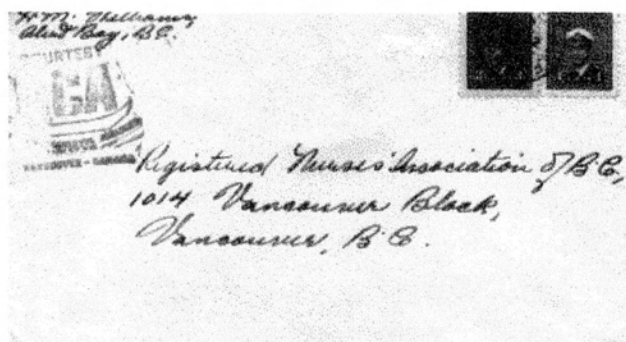 H. M.
Alert Bay, B.C.
COURTESY
CA
VANCOUVER - CANADA
Registered Nurses' Association of B.C,
1014 Vancouver Block,
Vancouver, B.C.